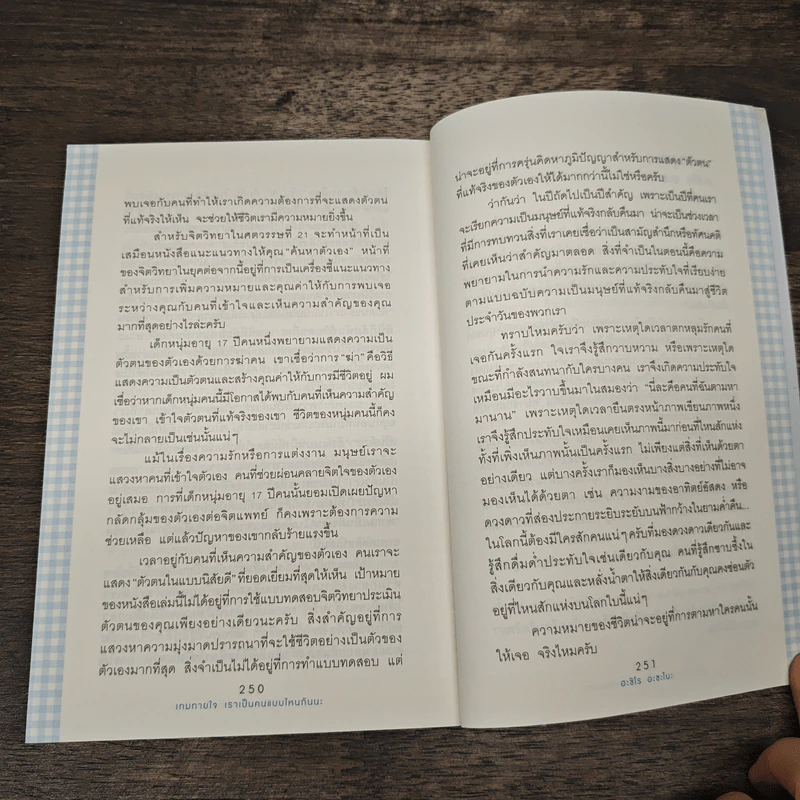 พบเจอกับคนที่ทำให้เราเกิดความต้องการที่จะแสดงตัวตน
ที่แท้จริงให้เห็น จะช่วยให้ชีวิตเรามีความหมายยิ่งขึ้น
สำหรับจิตวิทยาในศตวรรษที่ 21 จะทำหน้าที่เป็น
เสมือนหนังสือแนะแนวทางให้คุณ “ค้นหาตัวเอง” หน้าที่
ของจิตวิทยาในยุคต่อจากนี้อยู่ที่การเป็นเครื่องชี้แนะแนวทาง
สำหรับการเพิ่มความหมายและคุณค่าให้กับการพบเจอ
ระหว่างคุณกับคนที่เข้าใจและเห็นความสำคัญของคุณ
มากที่สุดอย่างไรล่ะครับ
เด็กหนุ่มอายุ 17 ปีคนหนึ่งพยายามแสดงความเป็น
ตัวตนของตัวเองด้วยการฆ่าคน เขาเชื่อว่าการ “ฆ่า” คือวิธี
แสดงความเป็นตัวตนและสร้างคุณค่าให้กับการมีชีวิตอยู่ ผม
เชื่อว่าหากเด็กหนุ่มคนนี้มีโอกาสได้พบกับคนที่เห็นความสำคัญ
ของเขา เข้าใจตัวตนที่แท้จริงของเขา ชีวิตของหนุ่มคนนี้ก็คง
จะไม่กลายเป็นเช่นนั้นแน่ๆ
แม้ในเรื่องความรักหรือการแต่งงาน มนุษย์เราจะ
แสวงหาคนที่เข้าใจตัวเอง คนที่ช่วยผ่อนคลายจิตใจของตัวเอง
อยู่เสมอ การที่เด็กหนุ่มอายุ 17 ปีคนนั้นยอมเปิดเผยปัญหา
กลัดกลุ้มของตัวเองต่อจิตแพทย์ ก็คงเพราะต้องการความ
ช่วยเหลือ แต่แล้วปัญหาของเขากลับร้ายแรงขึ้น
เวลาอยู่กับคนที่เห็นความสำคัญของตัวเอง คนเราจะ
แสดง “ตัวตนในแบบนิสัยดี” ที่ยอดเยี่ยมที่สุดให้เห็น เป้าหมาย
ของหนังสือเล่มนี้ไม่ได้อยู่ที่การใช้แบบทดสอบจิตวิทยาประเมิน
ตัวตนของคุณเพียงอย่างเดียวนะครับ สิ่งสำคัญอยู่ที่การ
แสวงหาความมุ่งมาดปรารถนาที่จะใช้ชีวิตอย่างเป็นตัวของ
ตัวเองมากที่สุด สิ่งจำเป็นไม่ได้อยู่ที่การทำแบบทดสอบ แต่
250
เกมทายใจ เราเป็นคนแบบไหนกันนะ
น่าจะอยู่ที่การครุ่นคิดหาภูมิปัญญาสำหรับการแสดง “ตัวตน”
ที่แท้จริงของตัวเองให้ได้มากกว่านี้ไม่ใช่หรือครับ
ว่ากันว่า ในปีถัดไปเป็นปีสำคัญ เพราะเป็นปีที่คนเรา
จะเรียกความเป็นมนุษย์ที่แท้จริงกลับคืนมา น่าจะเป็นช่วงเวลา
ที่มีการทบทวนสิ่งที่เราเคยเชื่อว่าเป็นสามัญสำนึกหรือทัศนคติ
ที่เคยเห็นว่าสำคัญมาตลอด สิ่งที่จำเป็นในตอนนี้คือความ
พยายามในการนำความรักและความประทับใจที่เรียบง่าย
ตามแบบฉบับความเป็นมนุษย์ที่แท้จริงกลับคืนมาสู่ชีวิต
ประจำวันของพวกเรา
ทราบไหมครับว่า เพราะเหตุใดเวลาตกหลุมรักคนที่
เจอกันครั้งแรก ใจเราจึงรู้สึกวาบหวาม หรือเพราะเหตุใด
ขณะที่กำลังสนทนากับใครบางคน เราจึงเกิดความประทับใจ
เหมือนมีอะไรวาบขึ้นมาในสมองว่า “นี่ละคือคนที่ฉันตามหา
มานาน” เพราะเหตุใดเวลายืนตรงหน้าภาพเขียนภาพหนึ่ง
เราจึงรู้สึกประทับใจเหมือนเคยเห็นภาพนี้มาก่อนที่ไหนสักแห่ง
ทั้งที่เพิ่งเห็นภาพนั้นเป็นครั้งแรก ไม่เพียงแต่สิ่งที่เห็นด้วยตา
อย่างเดียว แต่บางครั้งเราก็มองเห็นบางสิ่งบางอย่างที่ไม่อาจ
มองเห็นได้ด้วยตา เช่น ความงามของอาทิตย์อัสดง หรือ
ดวงดาวที่ส่องประกายระยิบระยับบนฟ้ากว้างในยามค่ำคืน...
ในโลกนี้ต้องมีใครสักคนแน่ๆ ครับที่มองดวงดาวเดียวกันและ
รู้สึกดื่มด่ำประทับใจเช่นเดียวกับคุณ คนที่รู้สึกซาบซึ้งใน
สิ่งเดียวกับคุณและหลั่งน้ำตาให้สิ่งเดียวกันกับคุณคงซ่อนตัว
อยู่ที่ไหนสักแห่งบนโลกใบนี้แน่ๆ
ความหมายของชีวิตน่าจะอยู่ที่การตามหาใครคนนั้น
ให้เจอ จริงไหมครับ
251
อะชิโร อะซะโนะ